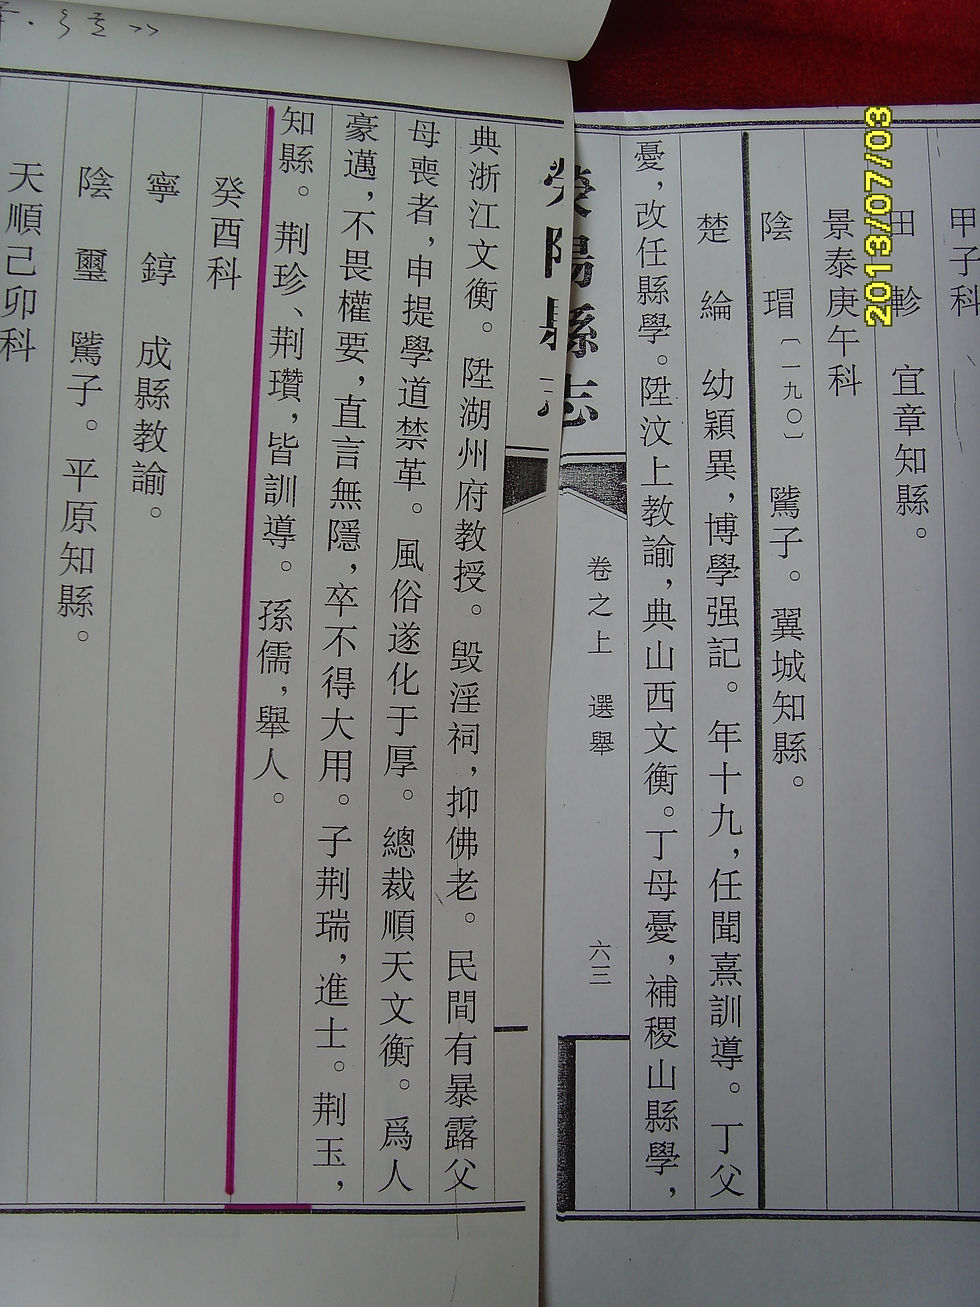 甲子科
田 軫 宜章知縣。
景泰庚午科
陰 瑁〔一九〇〕 騭子。翼城知縣。
楚 綸 幼穎異，博學强記。年十九，任聞熹訓導。丁父
憂，改任縣學。陞汶上教諭，典山西文衡。丁母憂，補稷山縣學，
滎陽縣志
卷之上 選舉
六三
典浙江文衡。陞湖州府教授。毁淫祠，抑佛老。民間有暴露父
母喪者，申提學道禁革。風俗遂化于厚。總裁順天文衡。爲人
豪邁，不畏權要，直言無隱，卒不得大用。子荆瑞，進士。荆玉，
知縣。荆珍、荆瓚，皆訓導。孫儒，舉人。
癸酉科
寧 錞 成縣教諭。
陰 璽 騭子。平原知縣。
天順己卯科
2013/07/03